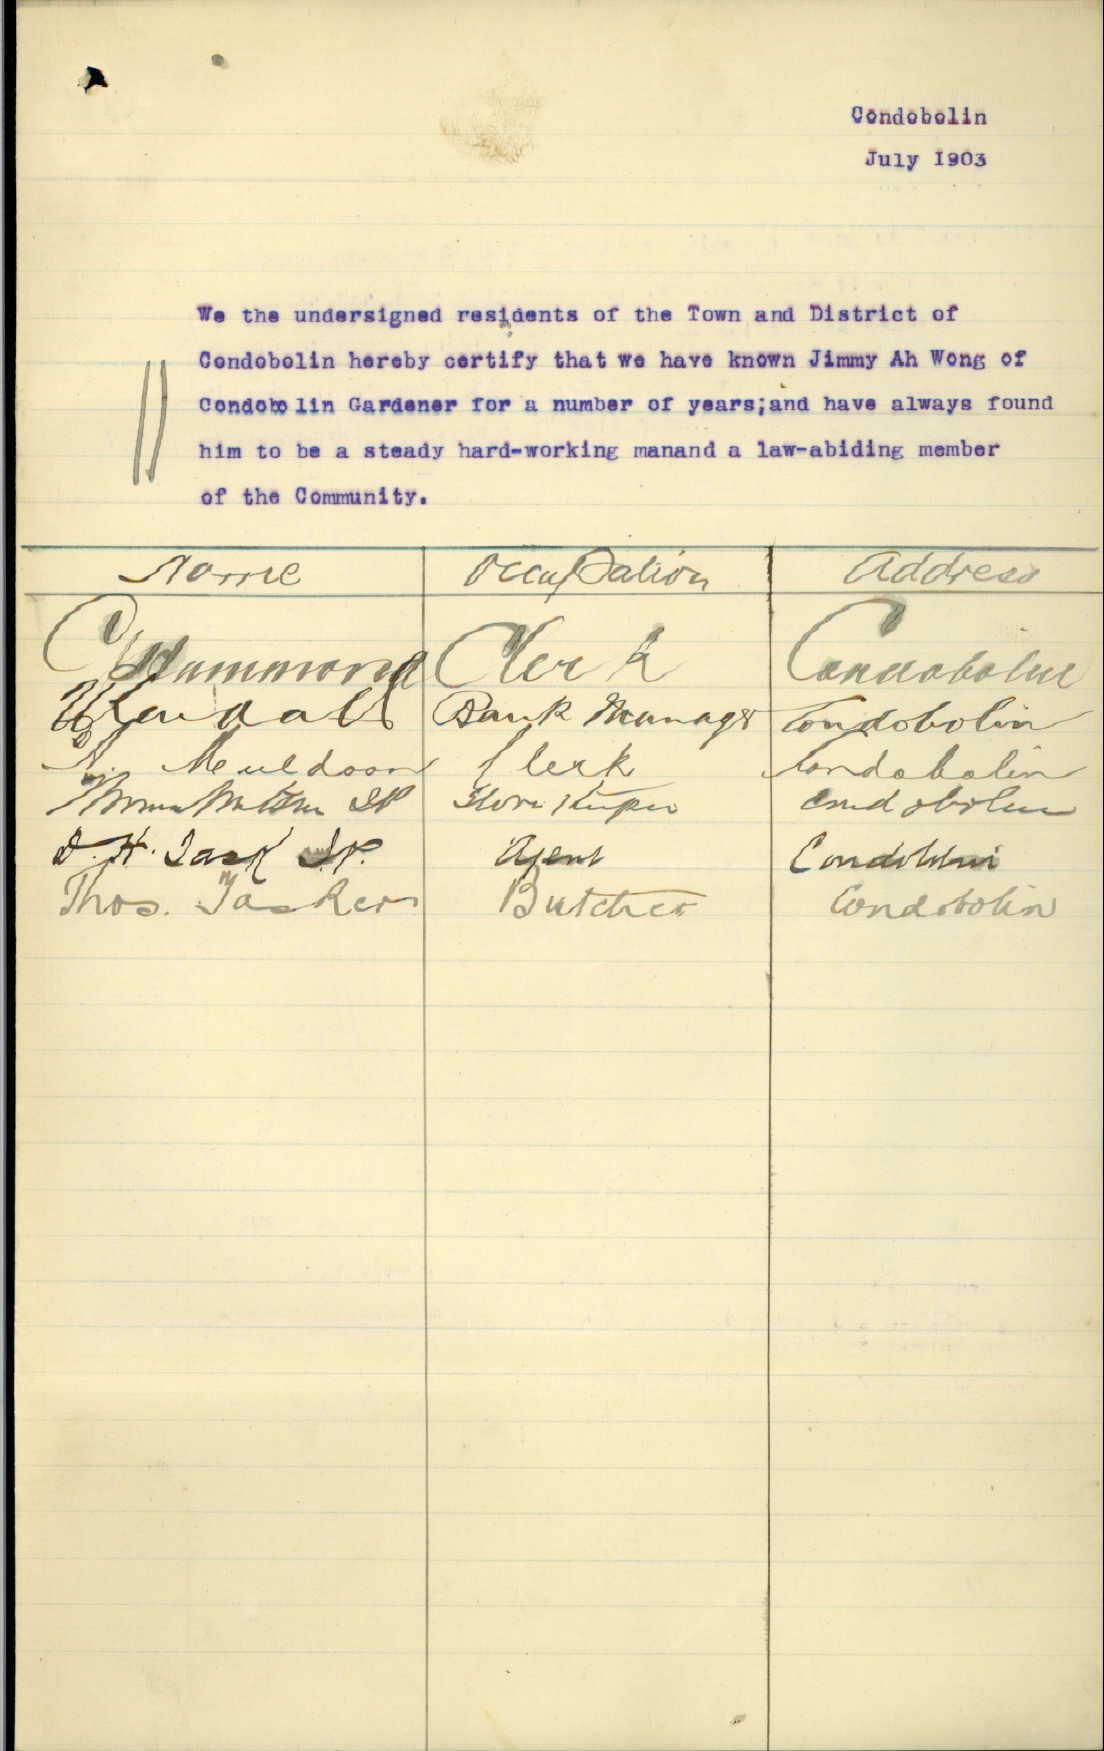 Condobolin
July 1903
We the undersigned residents of the Town and District of
Condobolin hereby certify that we have known Jimmy Ah Wong of
Condobolin Gardener for a number of years;and have always found
him to be a steady hard-working manand a law-abiding member
of the Community.
Name Occupation Address
Hammond Clerk Condobolin
Bank Manager Condobolin
Meuldoon Clerk Condobolin
Thomas JP Store Keeper Condobolin
D. H. Task J.P. Agent Condobolin
Thos. Tasker Butcher Condobolin